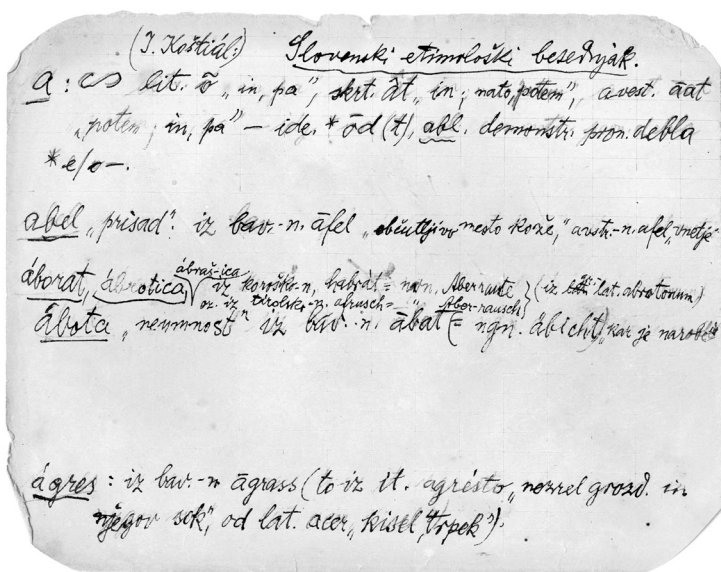 (I. Koštiál:) Slovenski etimološki besednjak.
a : cs lit. õ „in, pa”, skrt. ât „in; nato, potem”, avest. āat
„potem; in, pa” – ide. *ōd(t), abl. demonstr. pron. debla
*e/o–.
abel „prisad”: iz bav.-n. āfel „občutljivo mesto kože,” avstr.-n. afel „vnetje”
ábraš-ica
áborat, ábrotica, iz koroško-n. habrāt = ngn. Aberraute (iz lat. abrotonum)
oz. iz tirolsko-n. afrusch = „ Aber-rausch
ābota „neumnost” iz bav.-n. ābat (= ngn. äbicht) „kar je narobe”
ágres : iz bav.-n āgrass (to iz it. agrésto „nezrel grozd. in
njegov sok”, od lat. acer „kisel, trpek”).